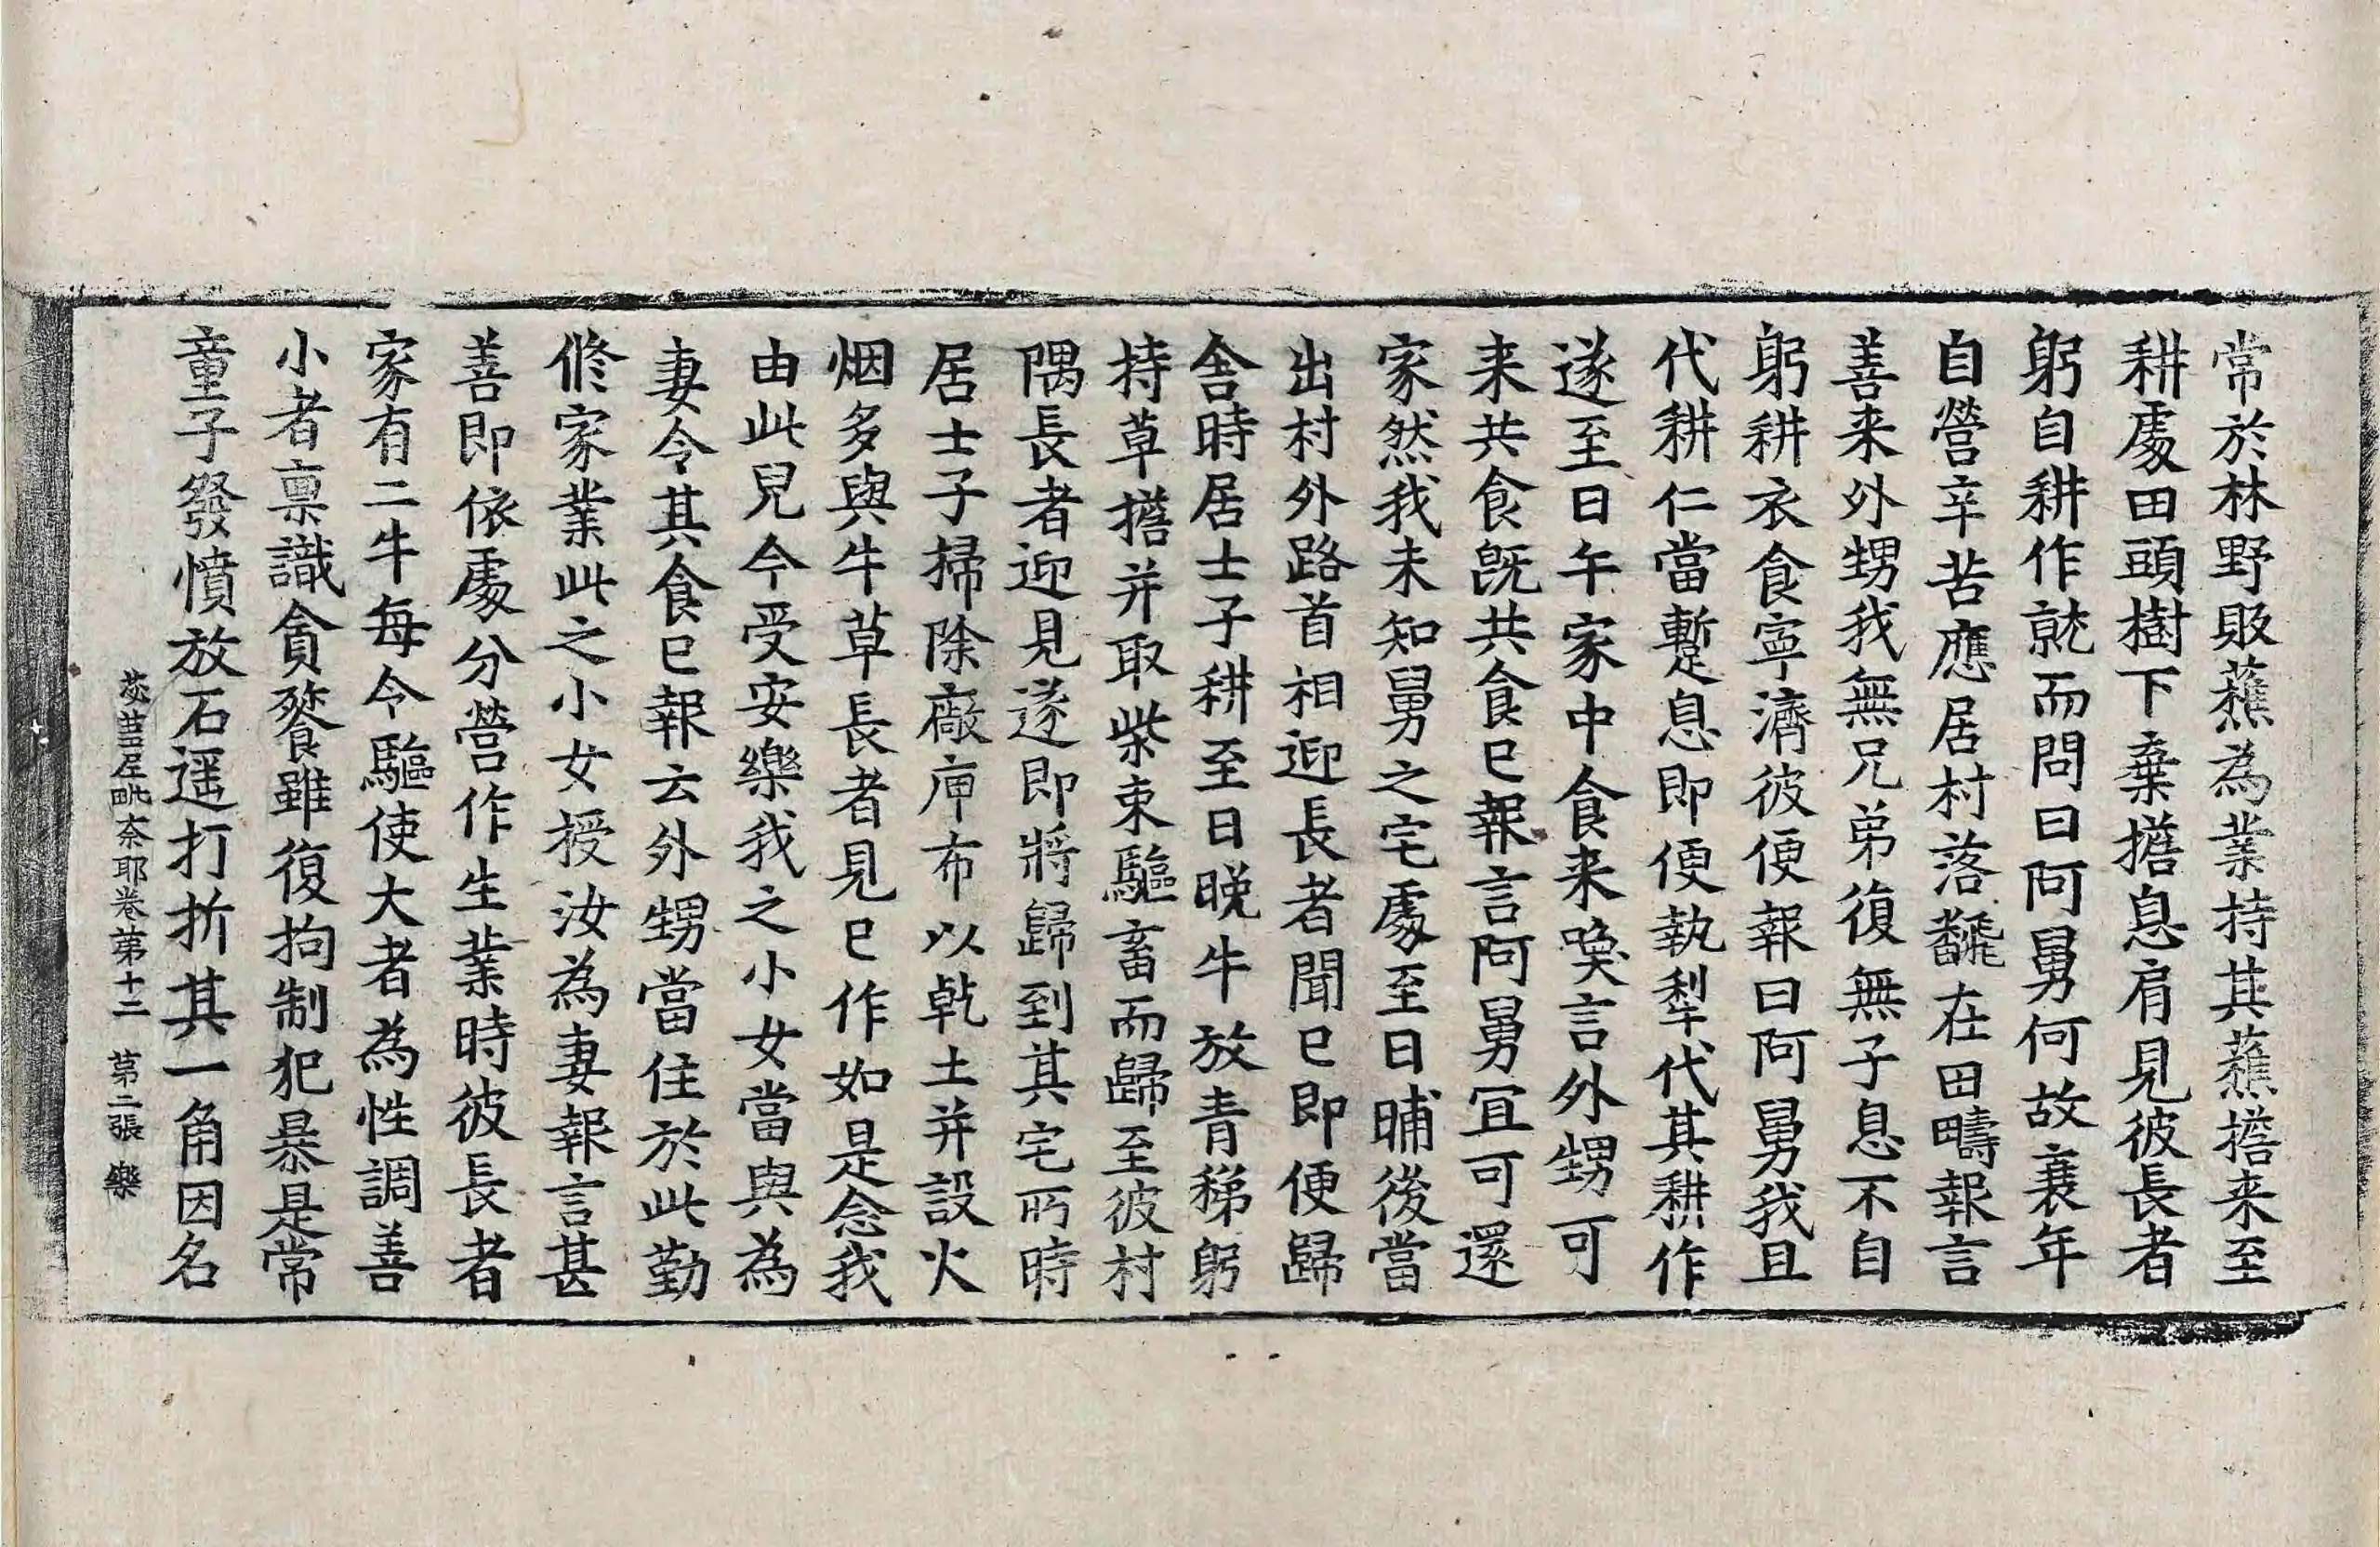 常於林野販蕉為業持其蕉擔来至
耕處田頭樹下棄擔息肩見彼長者
躬自耕作就而問曰阿舅何故衰年
自營辛苦應居村落飜在田疇報言
善来外甥我無兄弟復無子息不自
躬耕衣食寧濟彼便報曰阿舅我且
代耕仁當暫息即便執犁代其耕作
遂至日午家中食来喚言外甥可
来共食既共食已報言阿舅冝可還
家然我未知舅之宅處至日晡後當
出村外路首相迎長者聞已即便歸
舎時居士子耕至日晚牛放青稊躬
持草擔并取柴束驅畜而歸至彼村
隅長者迎見遂即將歸到其宅所時
居士子掃除廠庘布以乾土并設火
烟多與牛草長者見已作如是念我
由此兒今受安樂我之小女當與為
妻令其食已報云外甥當住於此勤
修家業此之小女授汝為妻報言甚
善即依處分營作生業時彼長者
家有二牛每令驅使大者為性調善
小者禀識貪餮雖復拘制犯暴是常
童子發憤放石遥打折其一角因名
苾蒭尼毗奈耶卷第十二　第二張　樂